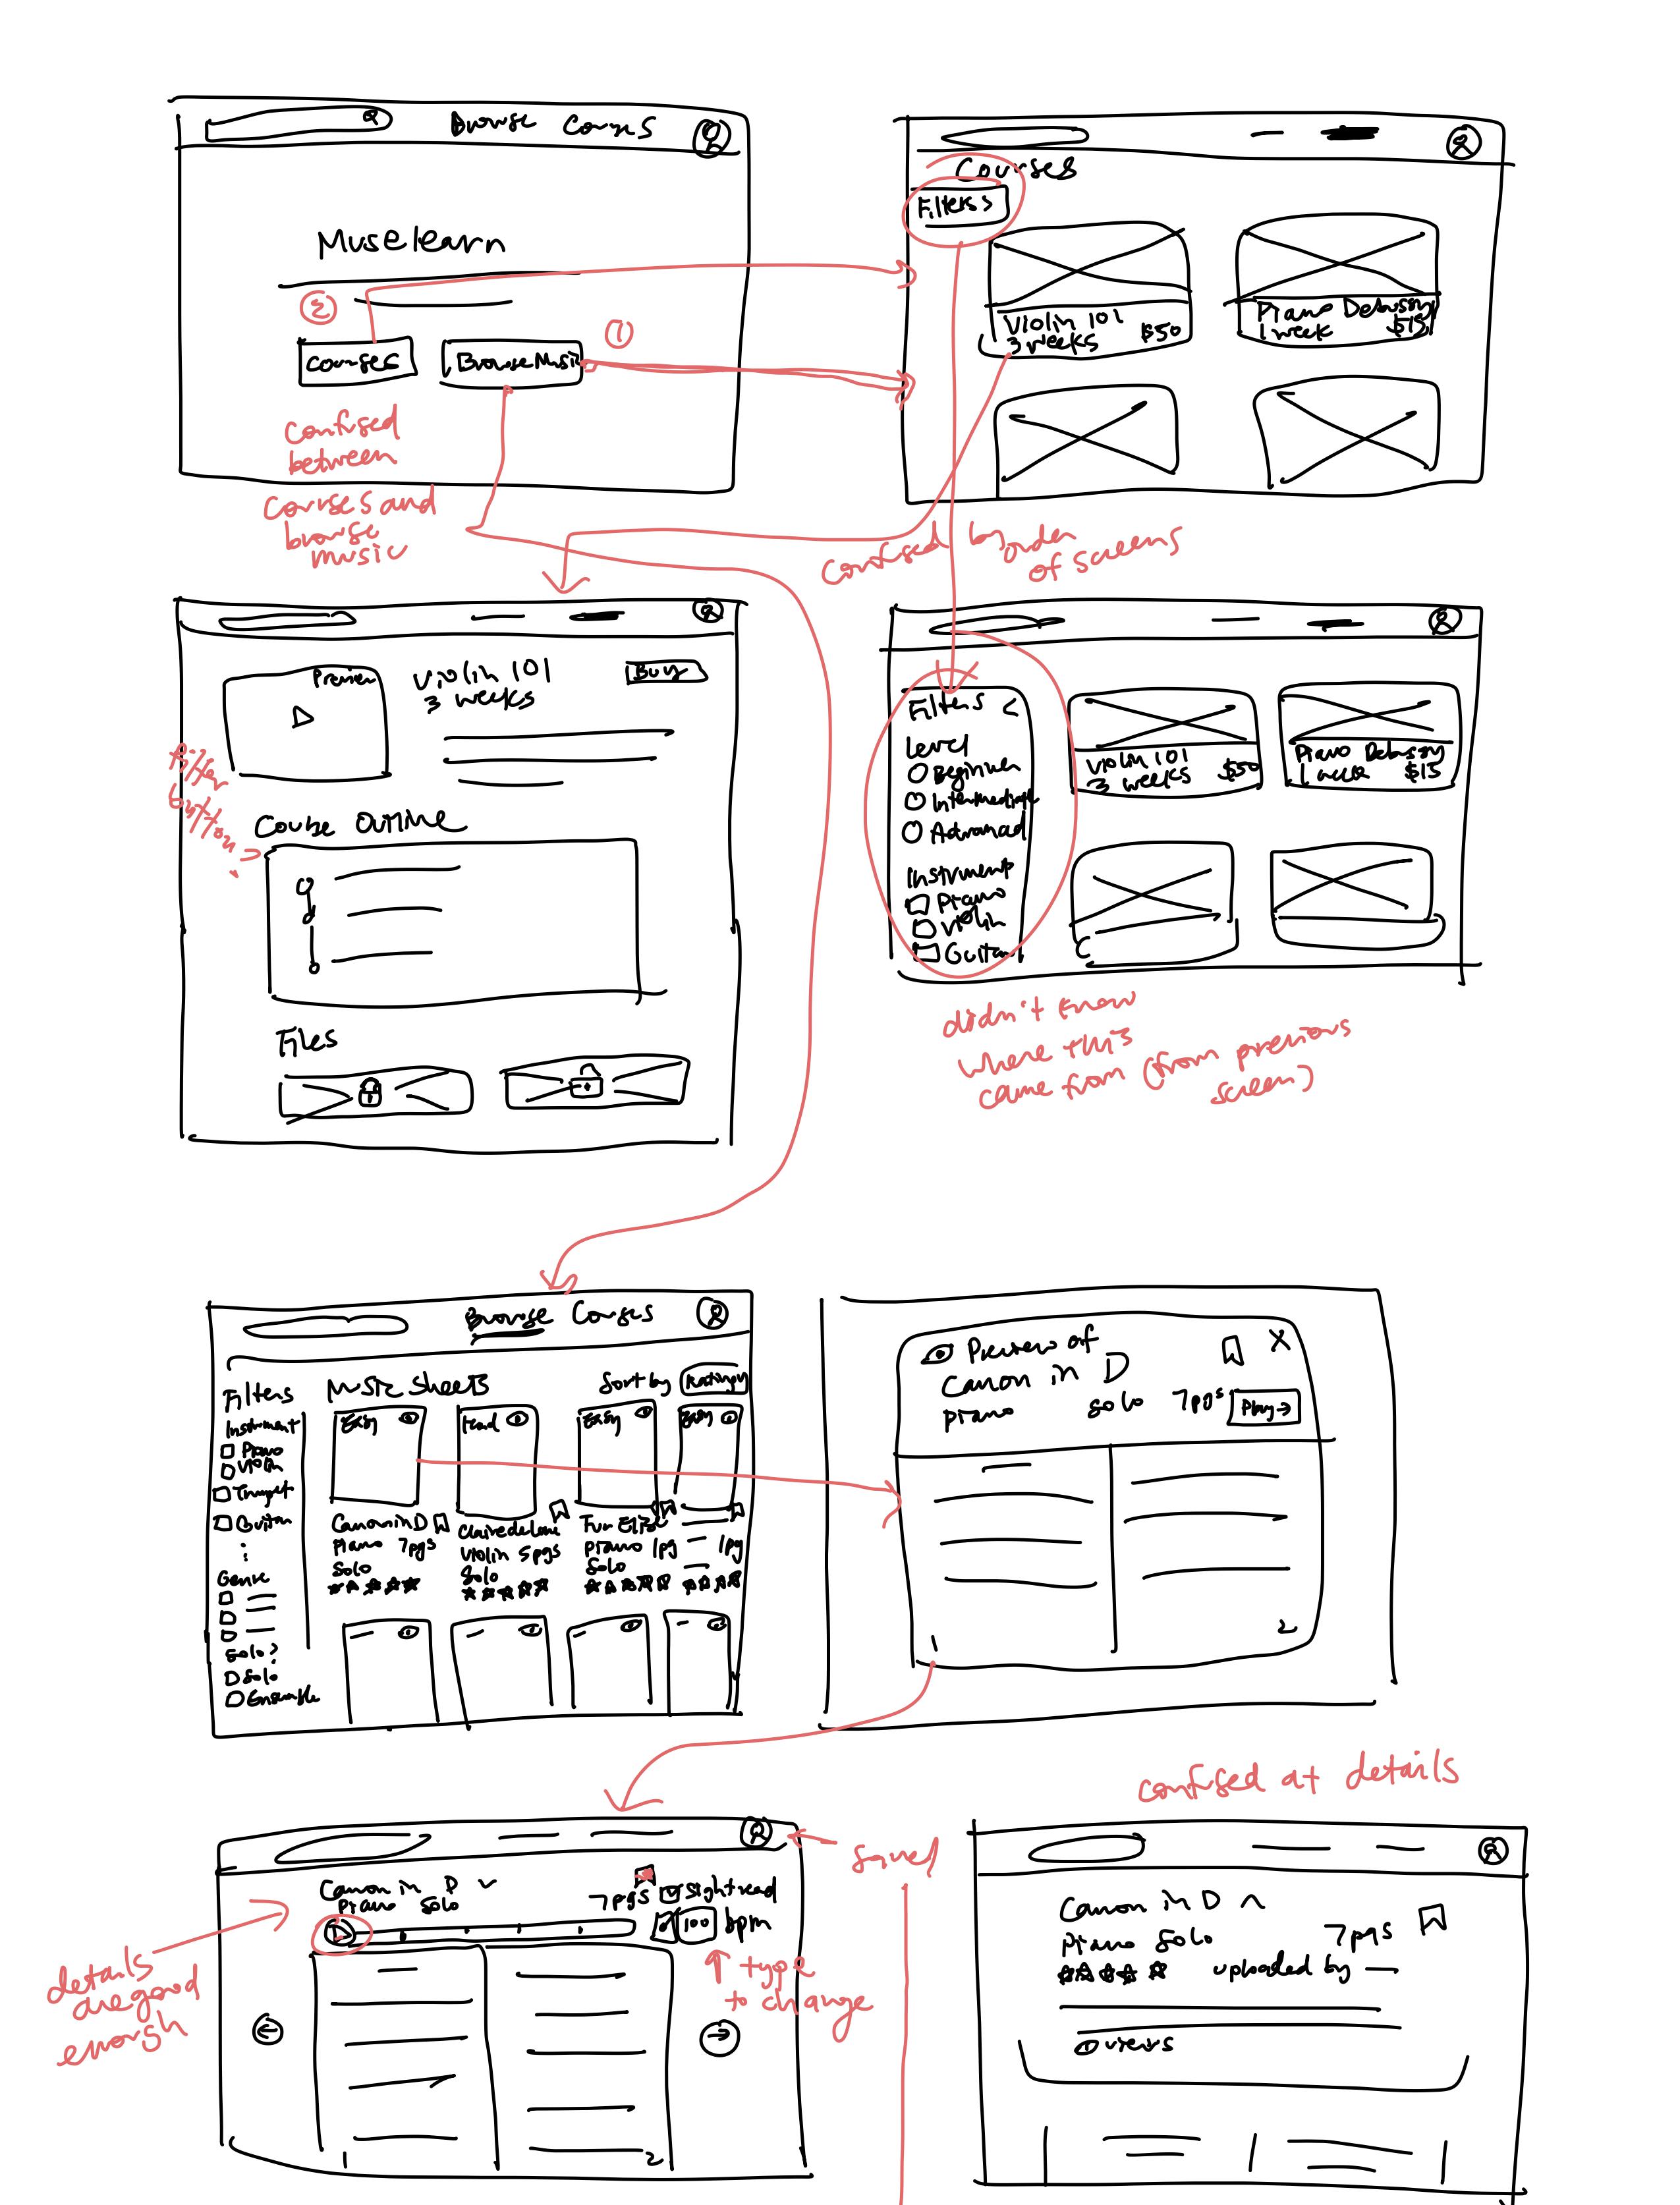 Browse Courses
Muselearn
②
①
Courses
Browse Music
Confused
between
Courses and
browse
music
Courses
Filters >
Violin 101
3 weeks $50
Piano Debussy
1 week $15
Confused by order
of screens
Preview
Violin 101
3 weeks
Buy
Course Outline
Files
filter
button
Filters <
Level
Beginner
Intermediate
Advanced
Instrument
Piano
Violin
Guitar
Violin 101
3 weeks $50
Piano Debussy
1 week $15
didn't know
where this
came from (from previous
screen)
Browse Courses
Filters
Instrument
Piano
Violin
Trumpet
Guitar
Genre
Solo?
Solo
Ensemble
Music Sheets
Sort by Rating
Easy
Hard
Easy
Easy
Canon in D
Piano 7pgs
Solo
Claire de Lune
Violin 5pgs
Solo
Fur Elise
Piano 1pg
Solo
1pg
Preview of
Canon in D
Piano Solo 7pgs
Play →
1
2
Canon in D
Piano Solo
7pgs Sightread
100 bpm
1
2
details
are good
enough
↑ type
to change
saved
confused at details
Canon in D
Piano Solo 7pgs
uploaded by
views